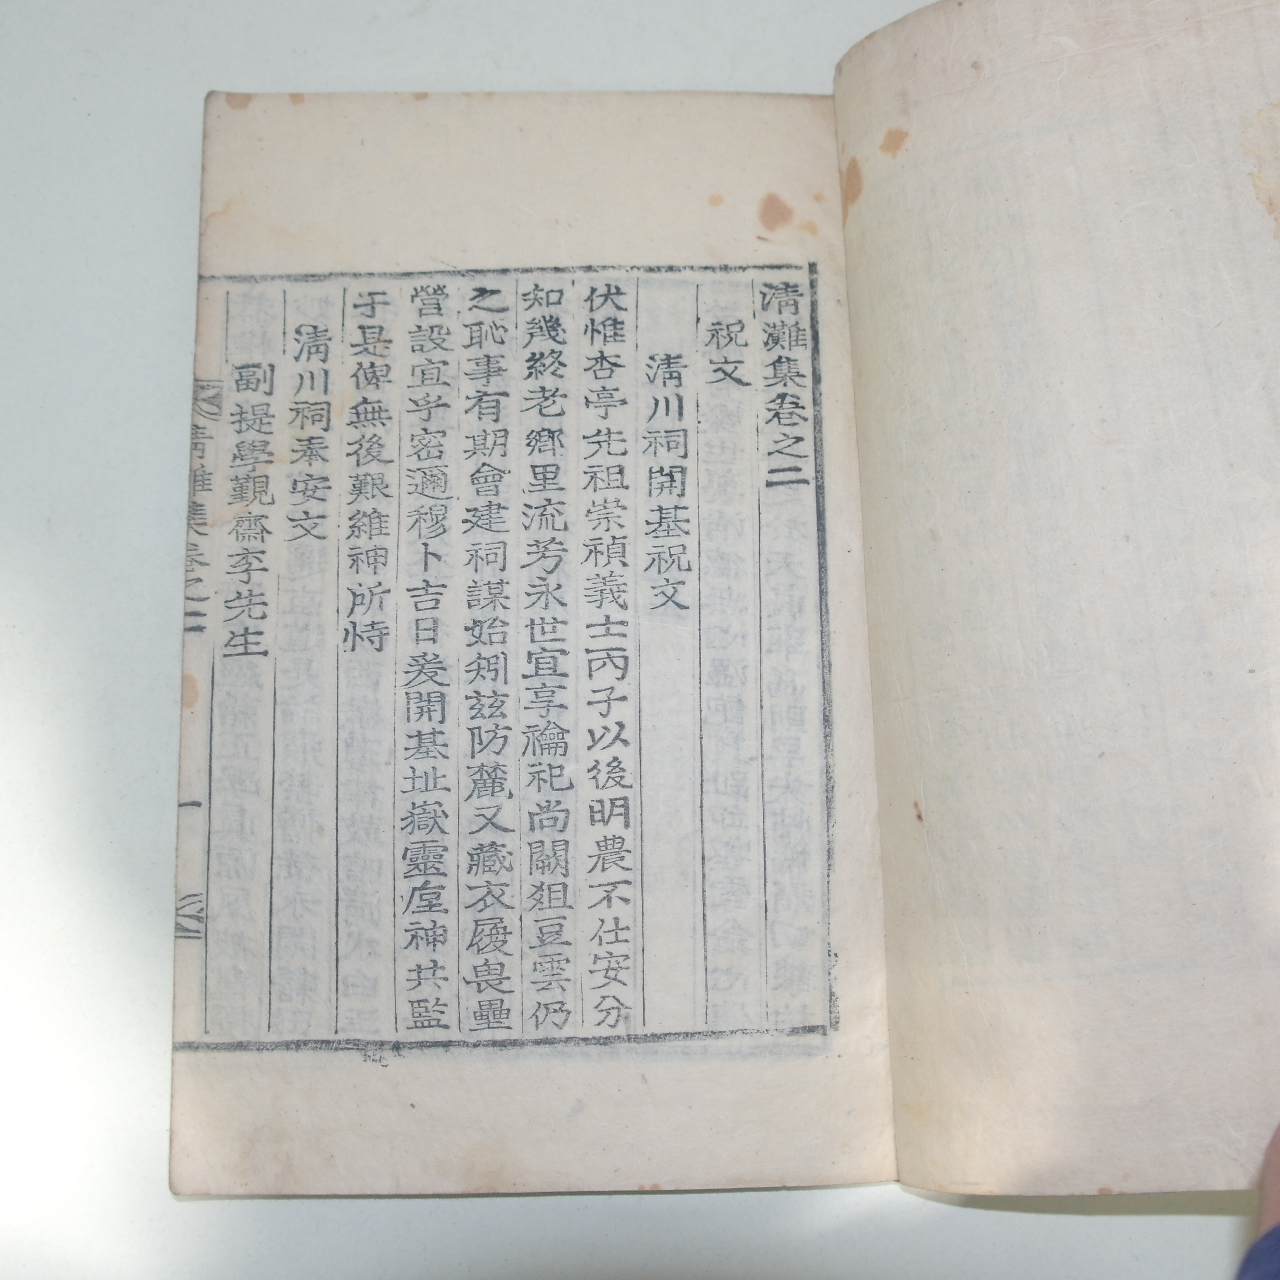 清灘集卷之二
祝文
清川祠開基祝文
伏惟杏亭先祖崇禎義士丙子以後明農不仕安分
知幾終老鄉里流芳永世宜享禴祀尚闕俎豆雲仍
之恥事有期會建祠謀始矧玆防麓又藏衣履畏壘
營設宜乎密邇穆卜吉日爰開基址嶽靈垕神共監
于是俾無後艱維神所恃
清川祠奉安文
副提學覲齋李先生
清灘集卷之二
一